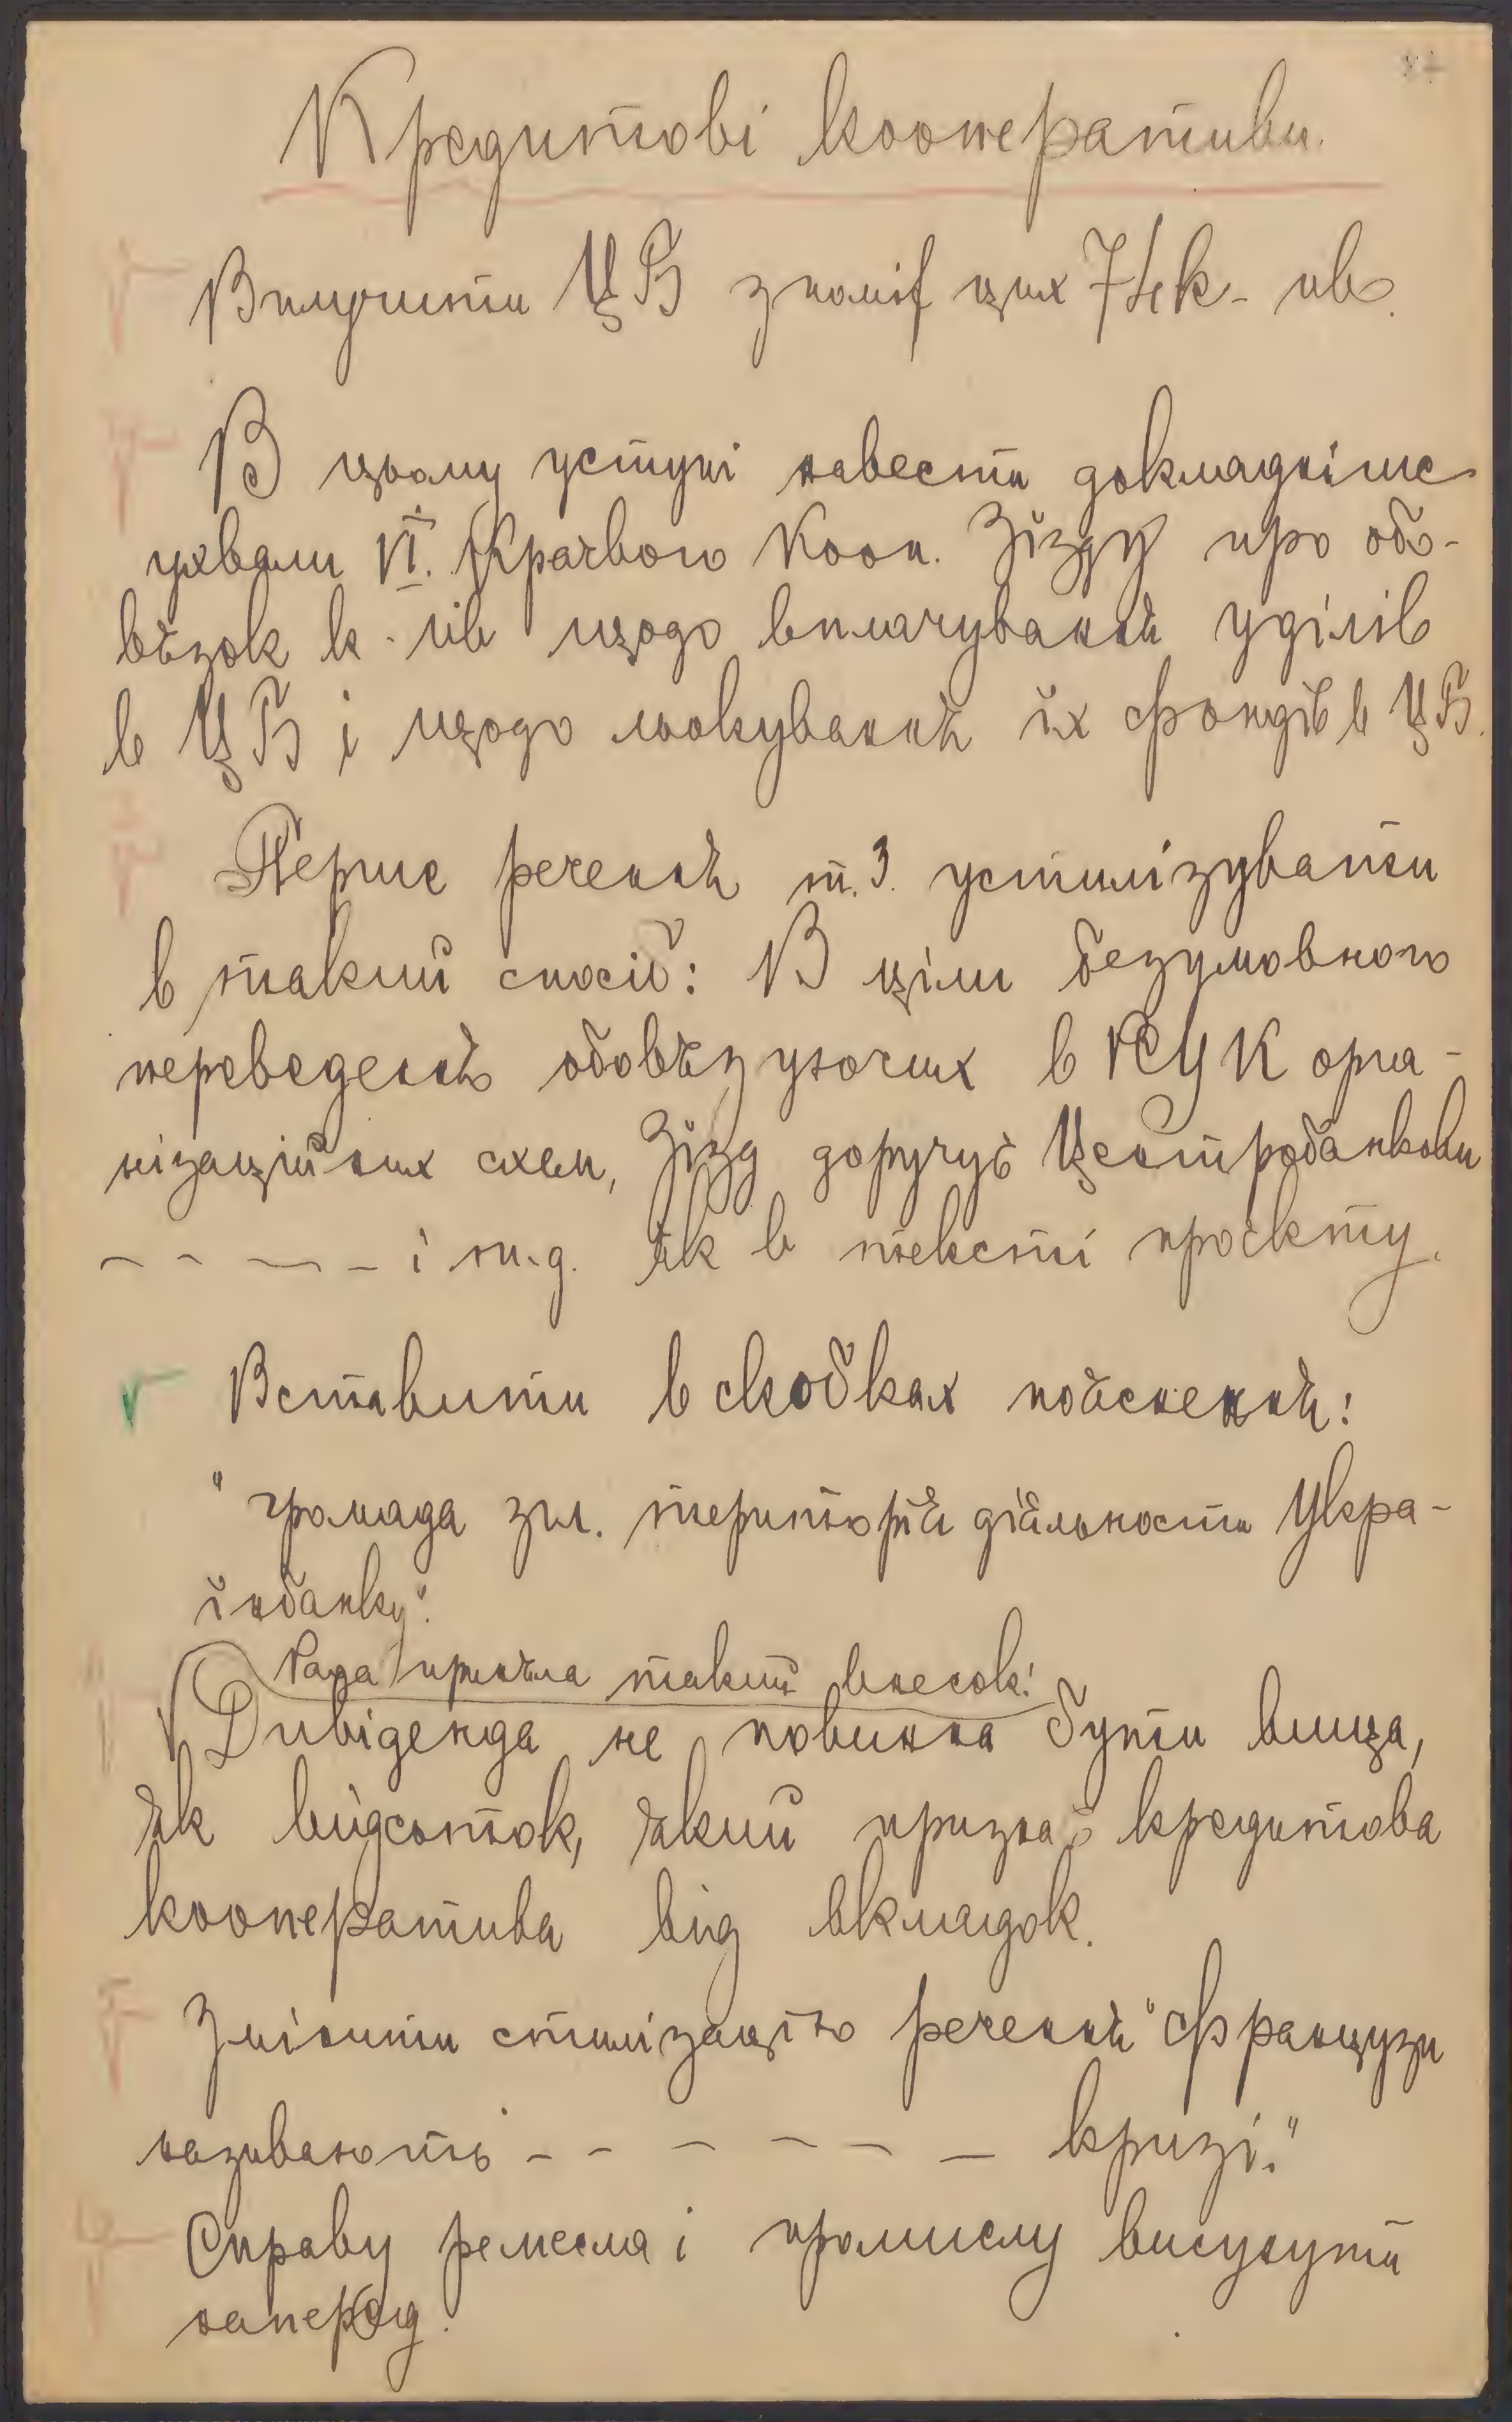 Кредитові кооперативи.
Вилучити ЦБ зпоміж цих 74 к-ив.
В цьому уступі навести докладніше
ухвали VI. Краєвого Кооп. Зїзду про обо-
вязок к-ив щодо виплачування уділів
в ЦБ і щодо льокування їх фондів в ЦБ.
Перше речення т. 3. устилізувати
в такий спосіб: В ціли безумовного
переведення обовязуючих в РСУК орга-
нізаційних схем, Зїзд доручує Центробанкови
- - - - і т.д. як в тексті проєкту.
Вставити в скобках пояснення:
"громада згл. територія діяльности Укра-
їнбанку".
Рада приняла такий внесок:
Дивіденда не повинна бути вища,
як відсоток, який признає кредитова
кооператива від вкладок.
Змінити стилізацію речення "Французи
називають - - - - - - кризі."
Справу ремесла і промислу висунути
наперед.